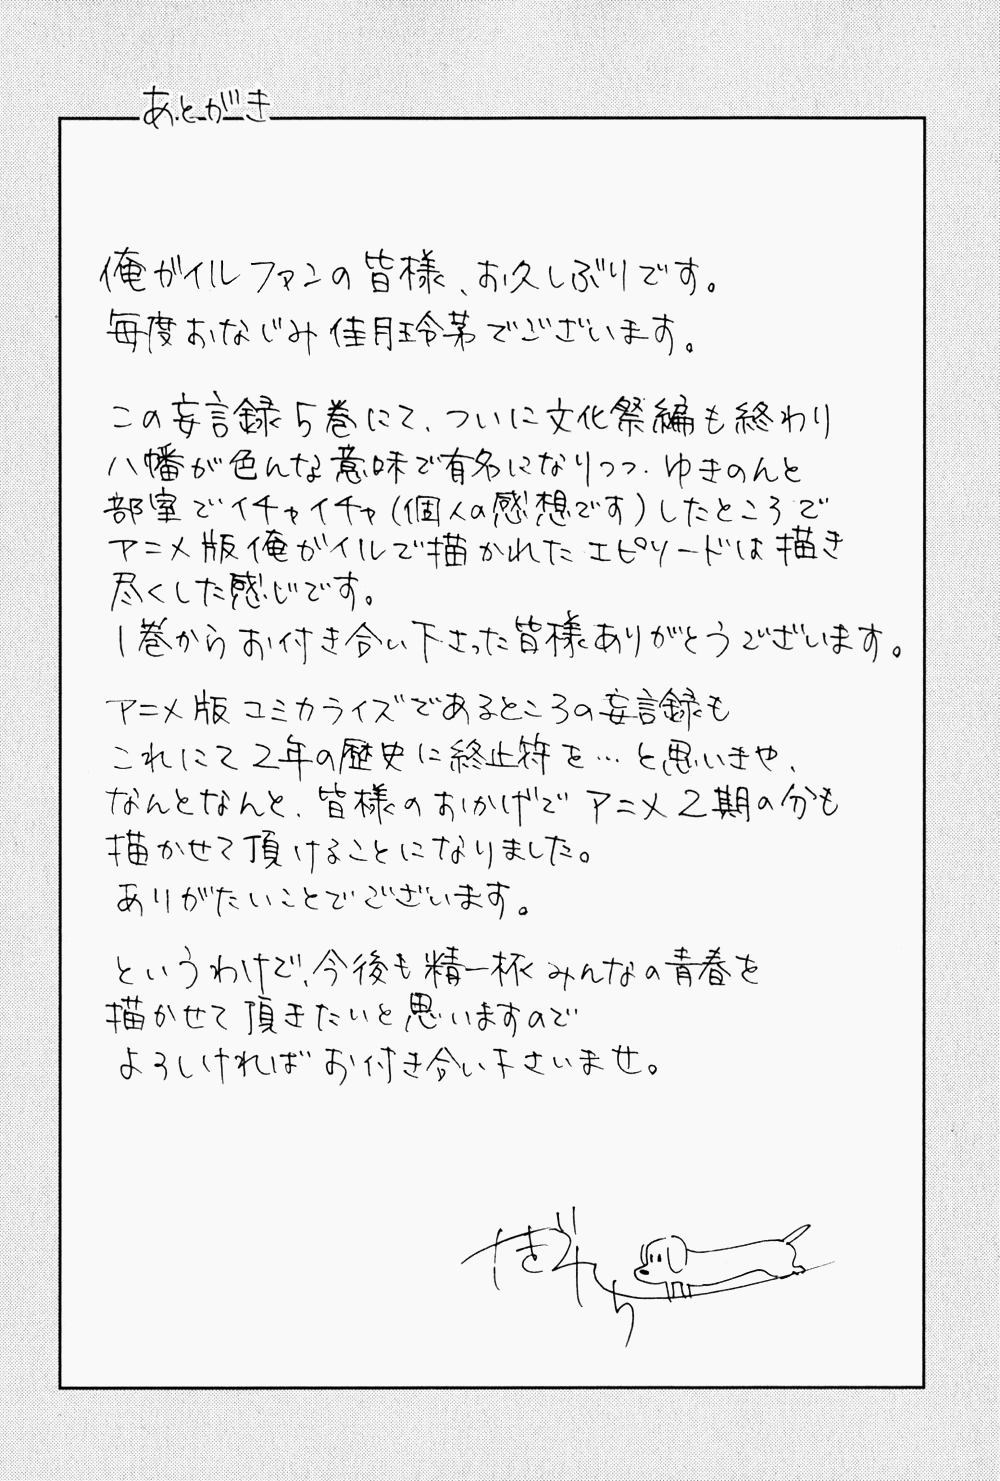 あとがき
俺ガイルファンの皆様、お久しぶりです。
毎度おなじみ佳月玲茅でございます。
この妄言録5巻にて、ついに文化祭編も終わり
八幡が色んな意味で有名になりつつ、ゆきのんと
部室でイチャイチャ(個人の感想です)したところで
アニメ版俺ガイルで描かれたエピソードは描き
尽くした感じです。
1巻からお付き合い下さった皆様ありがとうございます。
アニメ版コミカライズであるところの妄言録も
これにて2年の歴史に終止符を…と思いきや、
なんとなんと、皆様のおかげでアニメ2期の分も
描かせて頂けることになりました。
ありがたいことでございます。
というわけで、今後も精一杯みんなの青春を
描かせて頂きたいと思いますので
よろしければお付き合い下さいませ。